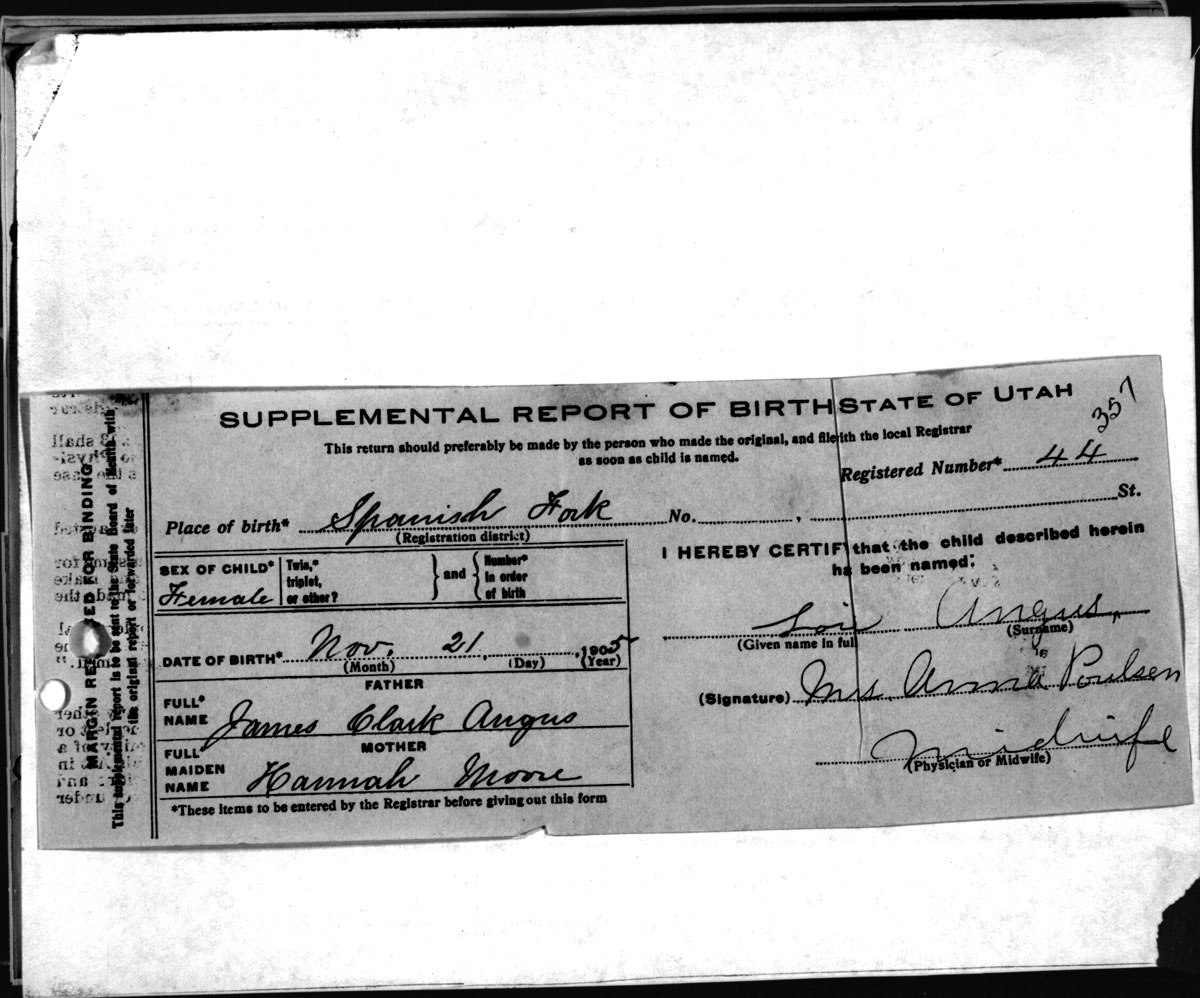 SUPPLEMENTAL REPORT OF BIRTH STATE OF UTAH
357
This return should preferably be made by the person who made the original, and file ith the local Registrar
as soon as child is named.
Registered Number* 44
Place of birth* Spanish Fork No. , St.
(Registration district)
SEX OF CHILD* Female
Twin,* triplet, or other? } and { Number* in order of birth
DATE OF BIRTH* Nov. 21, , 1905
(Month) (Day) (Year)
FATHER
FULL* NAME James Clark Angus
MOTHER
FULL MAIDEN NAME Hannah Moore
*These items to be entered by the Registrar before giving out this form
I HEREBY CERTIF that the child described herein
ha been named:
Lois Angus,
(Given name in full (Surname)
(Signature) Mrs. Anna Poulsen
Midwife
(Physician or Midwife)
MARGIN RE ED FOR BINDING
This supplemental report is to be sent to the State Board of Health with
the original report or forwarded later